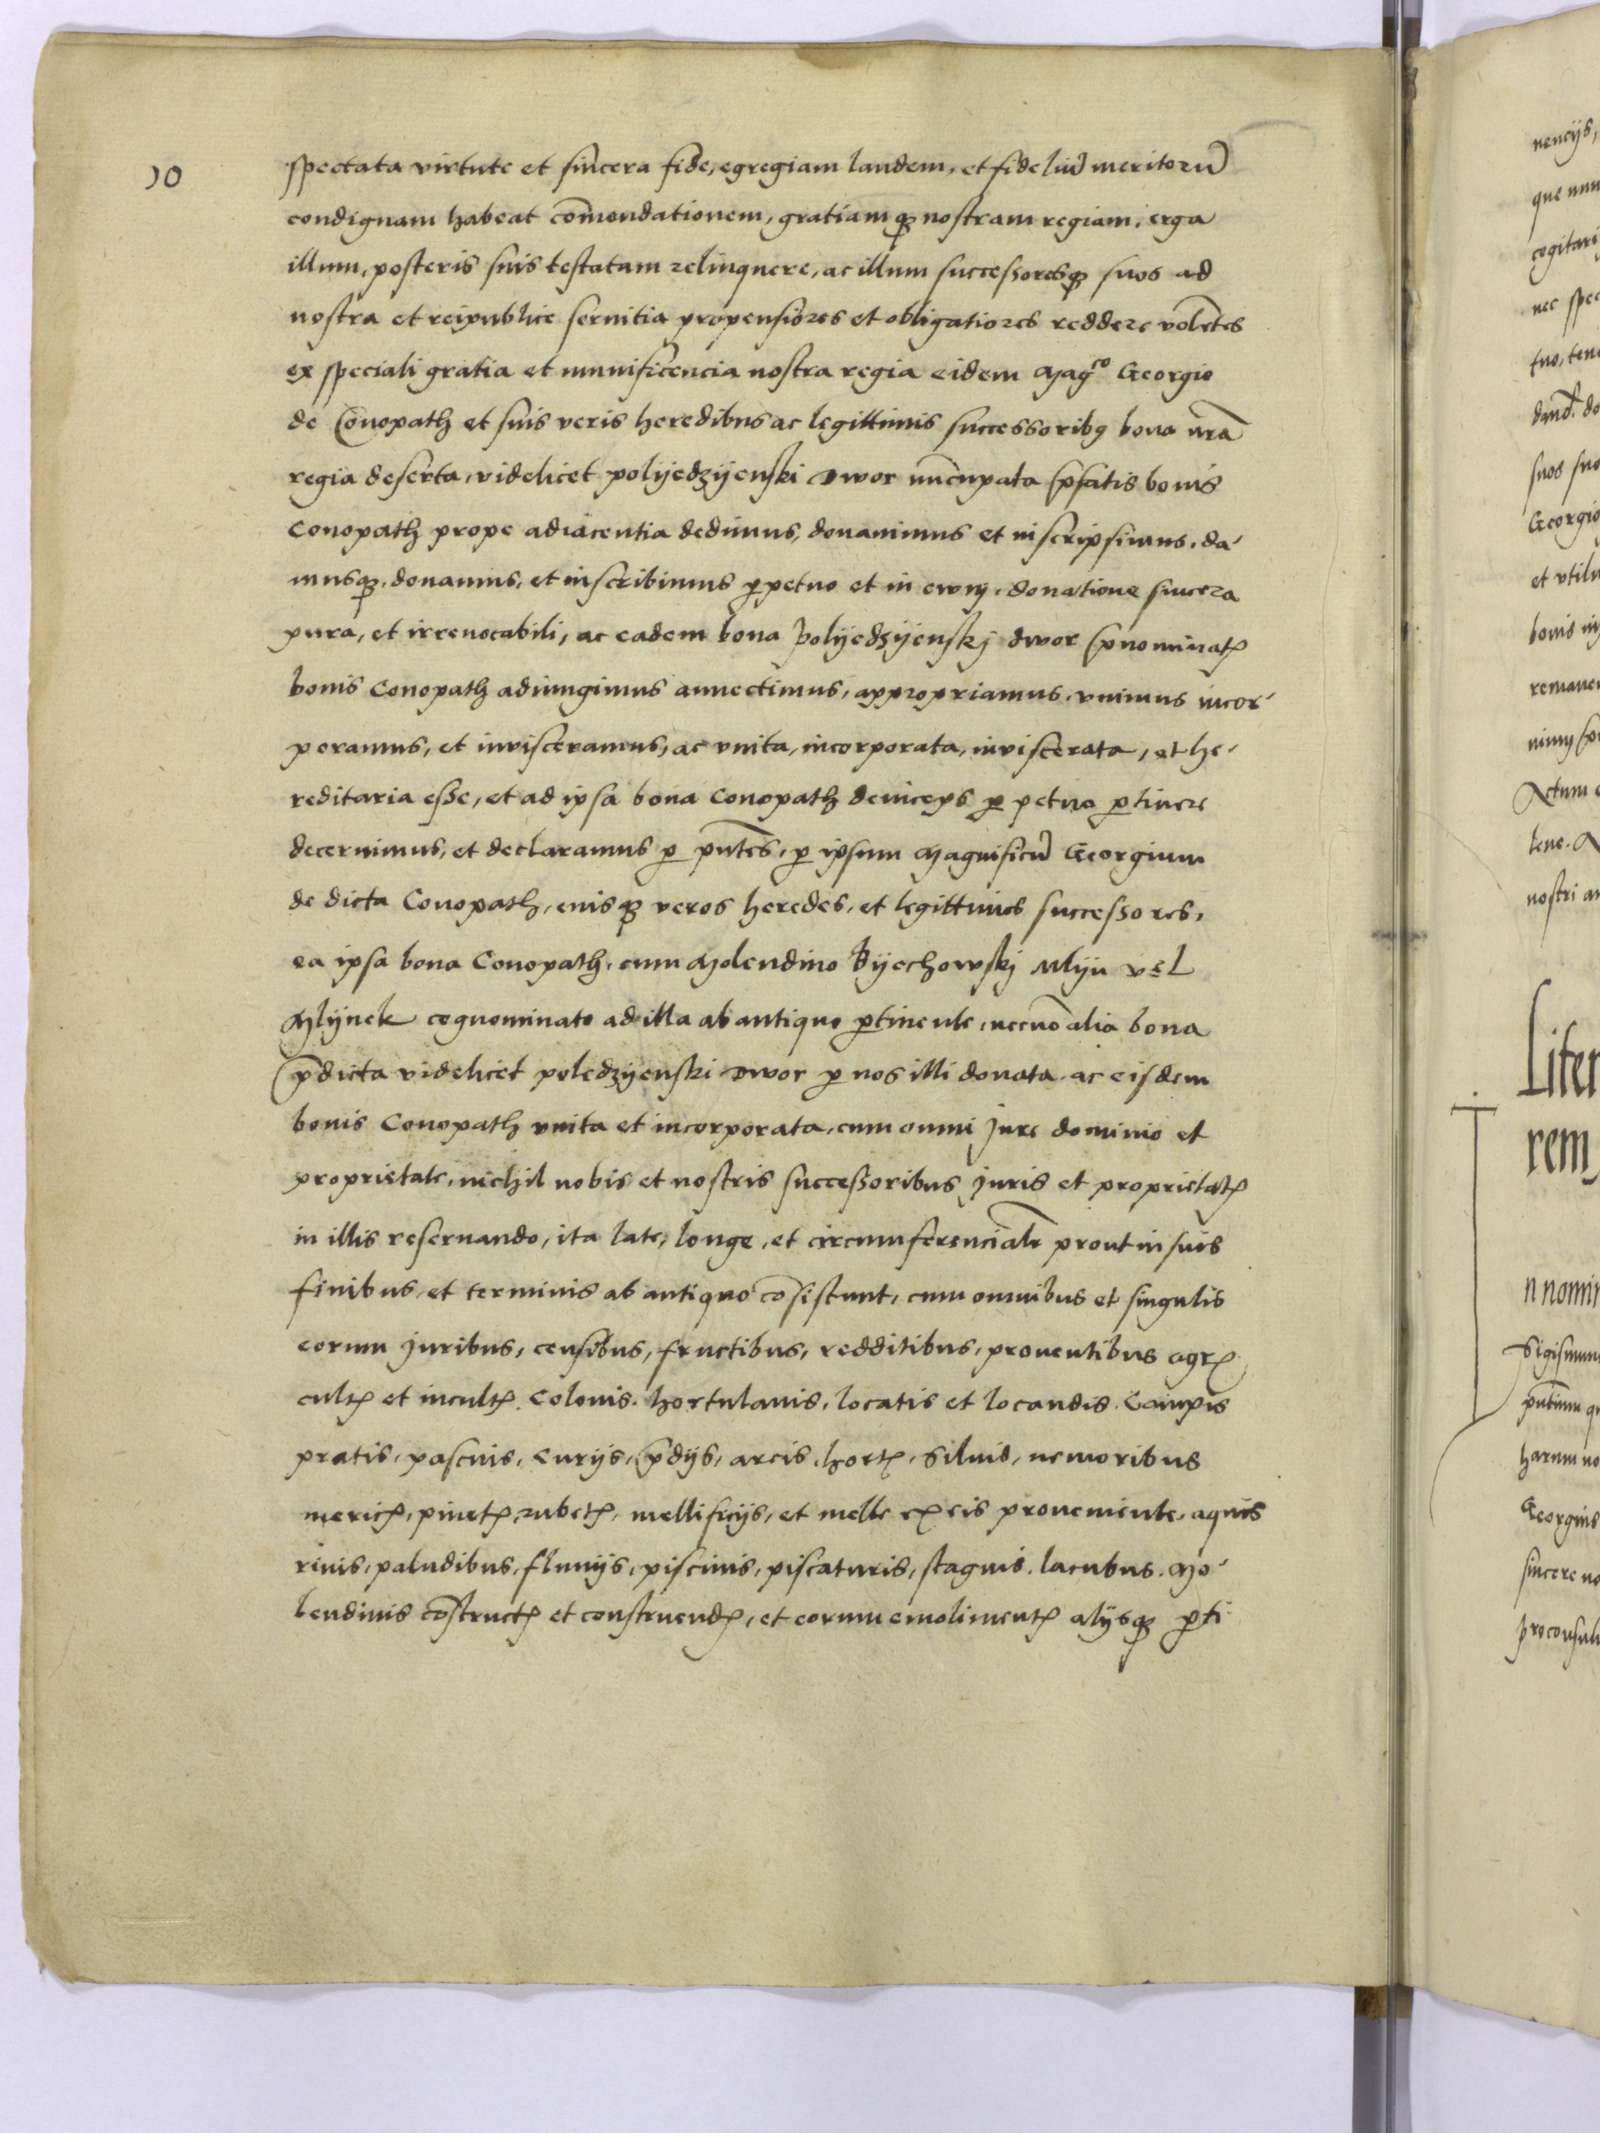 10
spectata virtute et sincera fide, egregiam laudem, et fideliū meritorū
condignam habeat cōmendationem, gratiamqꝫ nostram regiam, erga
illum, posteris suis testatam relinquere, ac illum successoresqꝫ suos ad
nostra et reipublice servitia propensiores et obligatiores reddere volētes
ex speciali gratia et munificencia nostra regia eidem Mag^co Georgio
de Conopath et suis veris heredibus ac legittimis successoribꝰ bona nr̄a
regia deserta, videlicet polijedzijenski Dwor nūcupata p̄fatis bonis
Conopath prope adiacentia dedimus, donavimus et inscripsimus, da-
musqꝫ, donamus, et inscribimus ꝑpetuo et in evum, donatione sincera
pura, et irrevocabili, ac eadem bona Polijedzijenskj dwor p̄nominatꝭ
bonis Conopath adiungimus annectimus, appropriamus, unimus incor-
poramus, et invisceramus, ac unita, incorporata, inviscerata, et he-
reditaria esse, et ad ipsa bona Conopath deinceps ꝑpetuo ꝑtinere
decernimus, et declaramus ꝑ pn̄tes, ꝑ ipsum Magnificū Georgium
de dicta Conopath, eiusqꝫ veros heredes, et legittimos successores,
ea ipsa bona Conopath, cum Molendino Bijechowskj Mlijn vel
Mlijnek cognominato ad illa ab antiquo ꝑtinente, necnō alia bona
p̄dicta videlicet poledzijenski Dwor ꝑ nos illi donata ac eisdem
bonis Conopath unita et incorporata, cum omni Jure dominio et
proprietate, nichil nobis et nostris successoribus Juris et proprietatꝭ
in illis reservando, ita late, longe, et circumferencialr̄ prout in suis
finibus et terminis ab antiquo cōsistunt, cum omnibus et singulis
eorum Juribus, censibus, fructibus, redditibus, proventibus agrꝭ
cultꝭ et incultꝭ Colonis, hortulanis, locatis et locandis Campis
pratis, pascuis, Curijs, p̄dijs, areis, hortꝭ, Silvis, nemoribus
mericꝭ, pinetꝭ, rubetꝭ, mellificijs, et melle ex eis proveniente, aquis
rivis, paludibus, fluvijs, piscinis, piscaturis, stagnis, lacubus, Mo-
lendinis cōstructꝭ et construendꝭ, et eorum emolimentꝭ alijsqꝫ ꝑti
nencijs,
que
cogitari
nec spec
tuo, tene
dand. do
suos suo
Georgio
et utilu
bonis in
remanen
Actum
nostri an
Liter
rem
n nomin
Sigismun
harum no
Georgius
sincere no
proconsuli